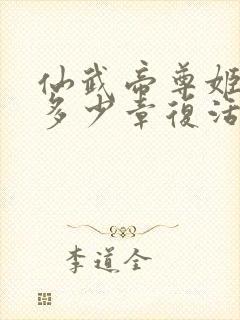 仙武帝尊姬
多少章復活
李道全